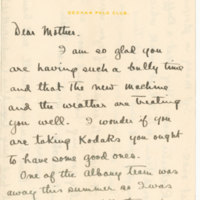 Dear Mother.
I am so glad you
are having such a bully time
and that the new machine
and the weather are treating
you well. I wonder if you
are taking Kodaks you ought
to have some good ones.
One of the Albany team was
away this summer so I was